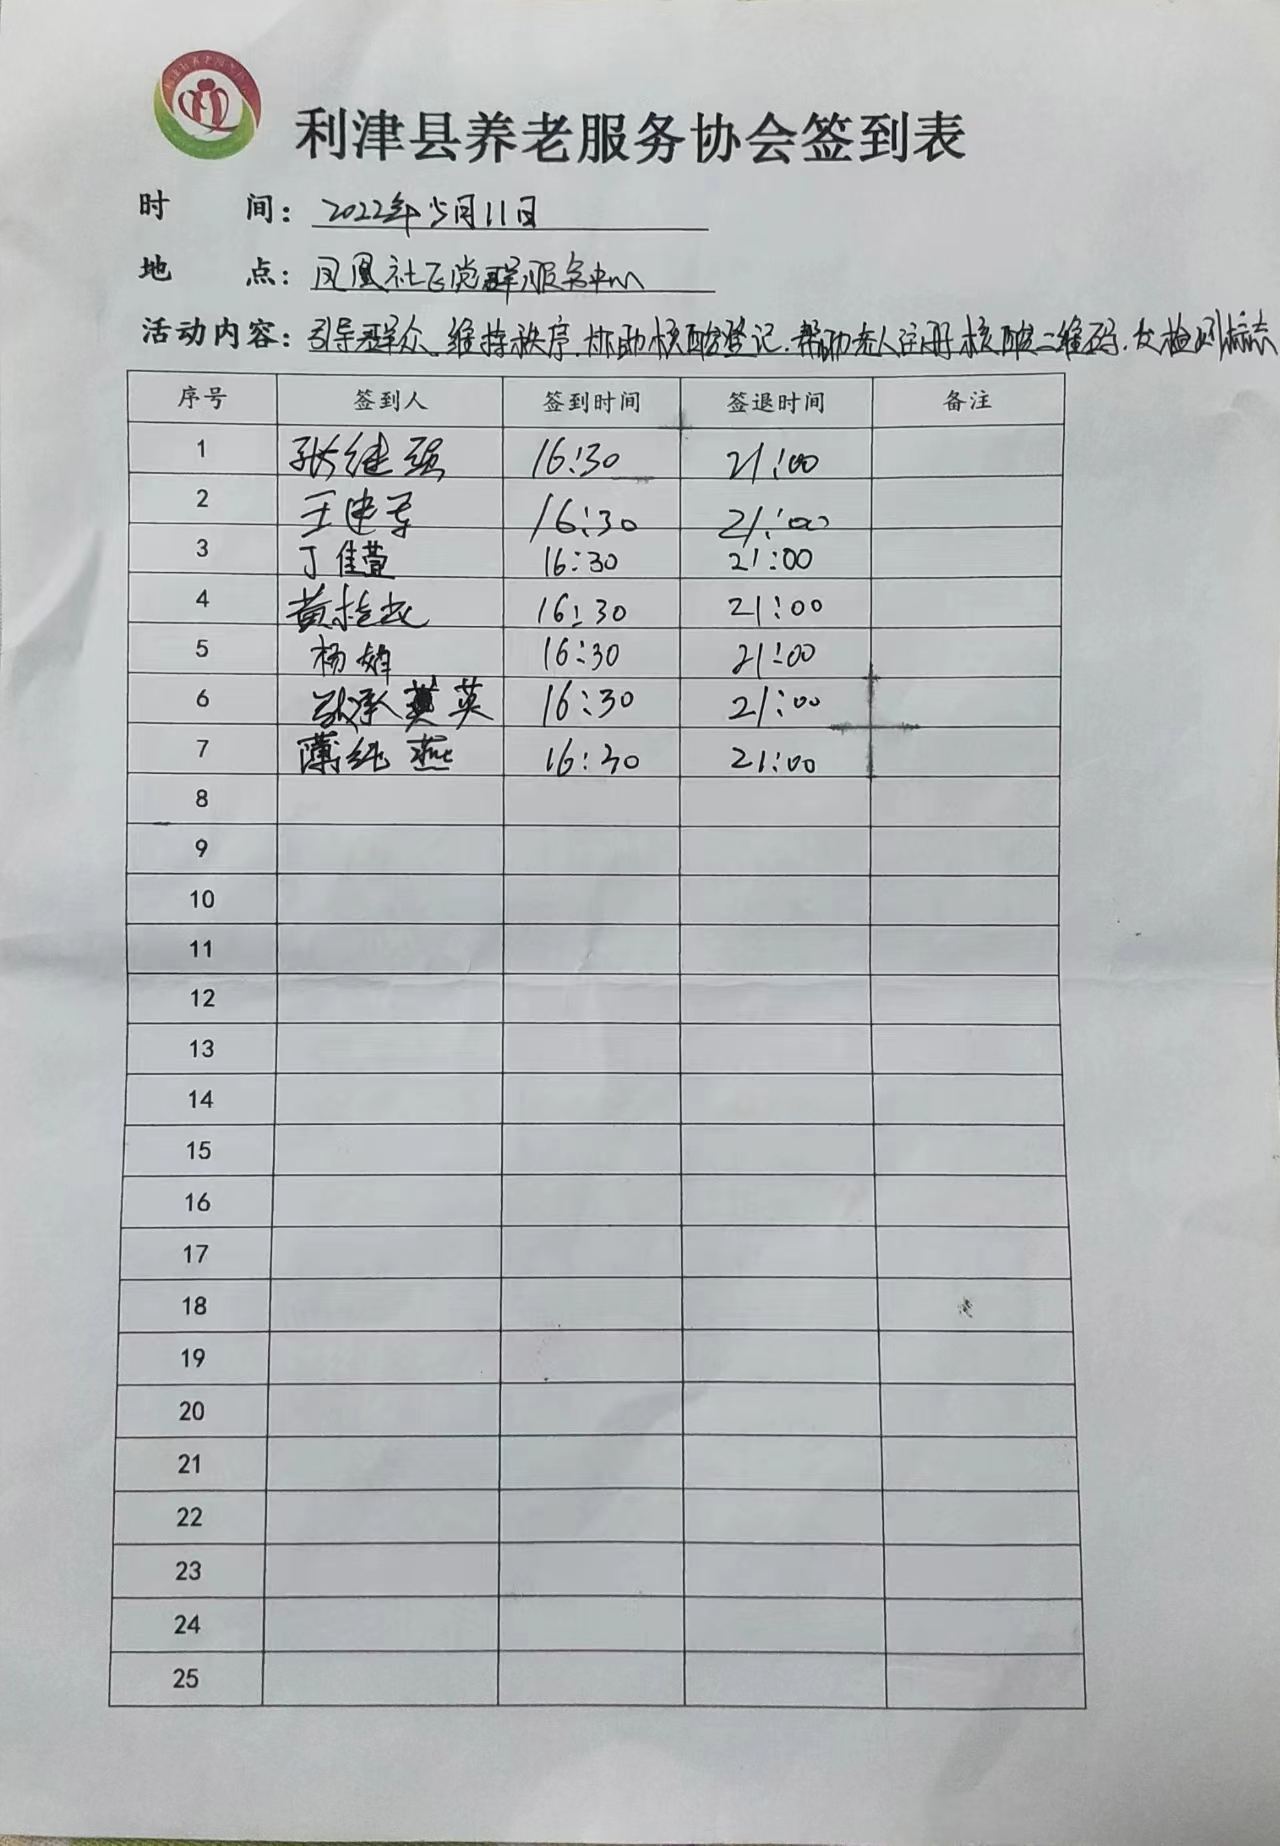 利津县养老服务协会签到表
时 间：2022年5月11日
地 点：凤凰社区党群服务中心
活动内容：引导群众、维持秩序、协助核酸登记、帮助老人注册核酸二维码、发检测标志
序号 签到人 签到时间 签退时间 备注
1 张继强 16:30 21:00
2 王建军 16:30 21:00
3 丁佳萱 16:30 21:00
4 黄 16:30 21:00
5 杨婷 16:30 21:00
6 英 16:30 21:00
7 薄纯燕 16:30 21:00
8
9
10
11
12
13
14
15
16
17
18
19
20
21
22
23
24
25